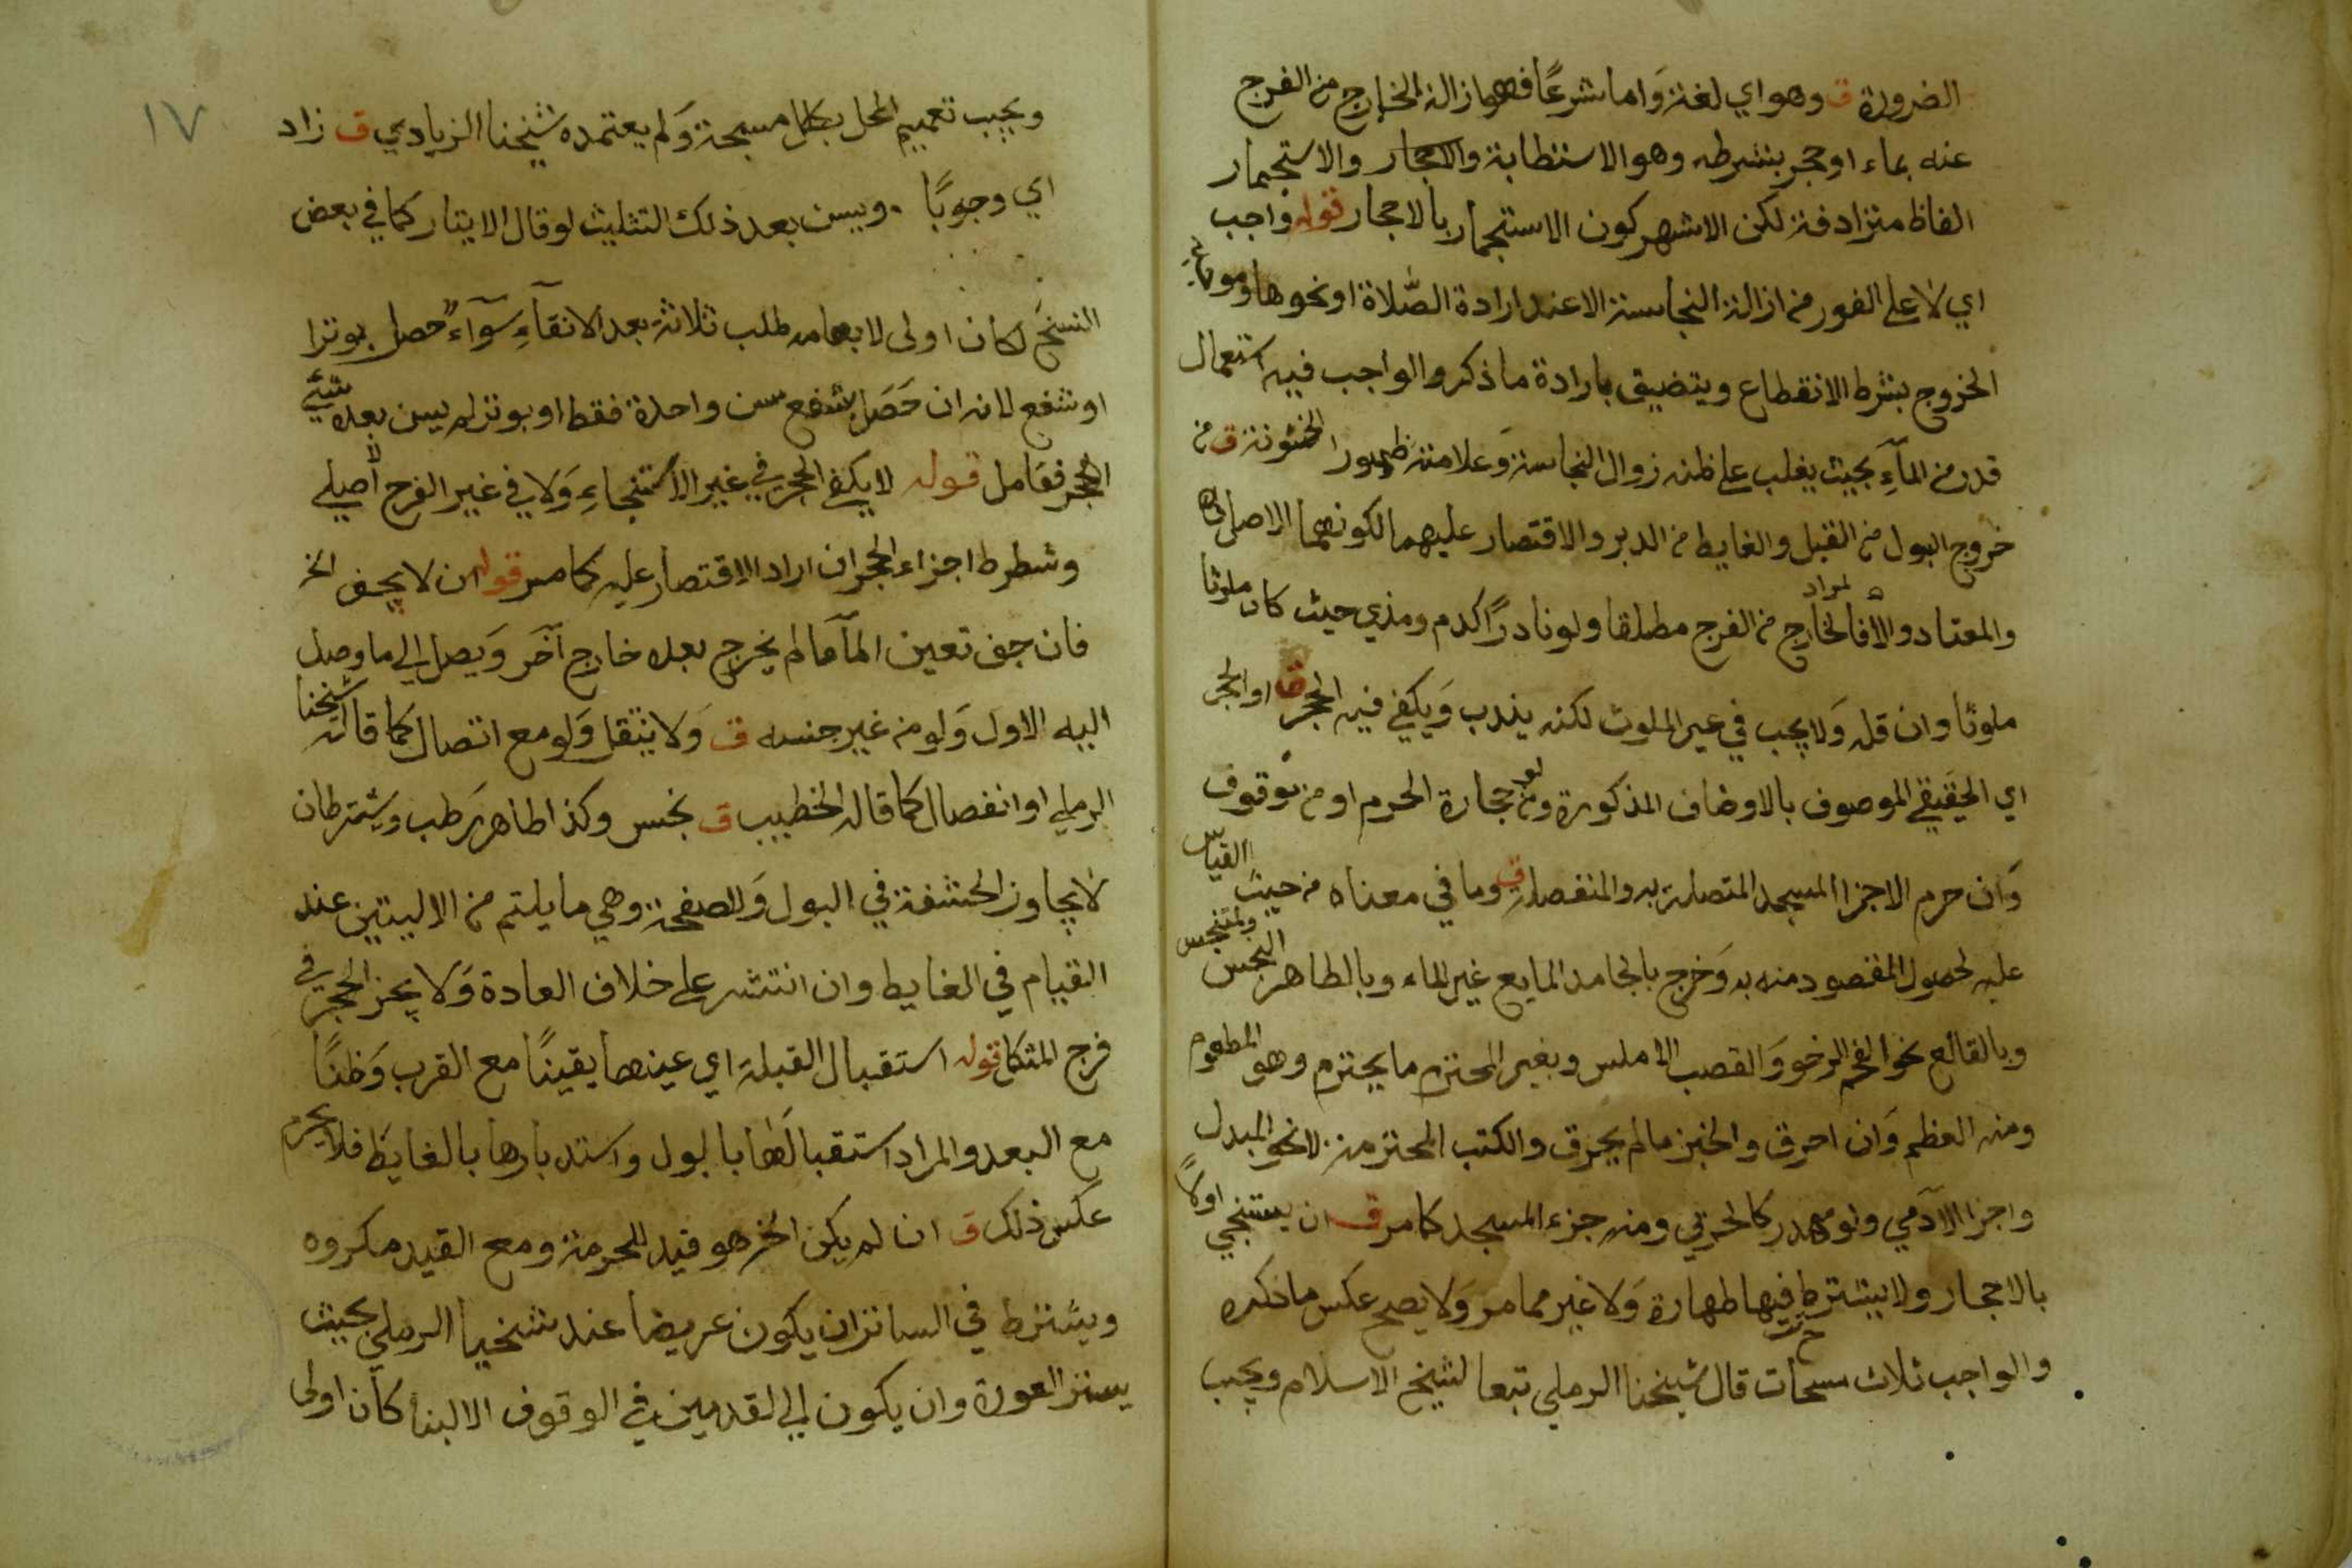 الضرورة ق وهو اي لغة وَاما شرعًا فهو ازالة الخارج من الفرج
عنه بماء او حجر بشرطه وهو الاستطابة والاحجار والاستجمار
الفاظ مترادفة لكن الاشهر كون الاستجمار بالاحجار قوله واجب
اي لا على الفور من ازالة النجاسة الا عند ارادة الصّلاة او نحوها
الخروج بشرط الانقطاع ويتضيق بارادة ما ذكر والواجب فيه استعمال
قدر من المآءِ بحيث يغلب على ظنه زوال النجاسة وَعلامته ظهور الخشونة ق من
خروج البول من القبل والغايط من الدبر والاقتصار عليهما لكونهما الاصل
والمعتاد والا فالمراد الخارج من الفرج مطلقا ولو نادرًا كدم ومذي حيث كان ملوثا
ملوثا وان قل وَلا يجب في غير الملوث لكنه يندب وَيكفي فيه الحجر ق او الحجر
اي الحقيقي الموصوف بالاوصاف المذكورة ولو من حجارة الحرم او من موقوف
وَان حرم الاجزا المسجد المتصلة به والمنفصلة ق وما في معناه من حيث القياس
عليه لحصول المقصود منه به وَخرج بالجامد المايع غير الماء وبالطاهر النجس والمتنجس
وبالقالع نحو الفحم الرخو وَالقصب الاملس وبغير المحترم ما يحترم وهو المطعوم
ومنه العظم وَان احرق والخبز ما لم يحرق والكتب المحترمة لا نحو المبدل
واجزا الآدمي ولو مهدر كالحربي ومنه جزء المسجد كما مر ق ان يستنجي اولًا
بالاحجار ولا يشترط فيها طهارة وَلا غير مما مر وَلا يصح عكس ما ذكره
والواجب ثلاث مسحات قال شيخنا الرملي تبعا لشيخ الاسلام ويجب
١٧
ويجب تعميم المحل بكل مسحة وَلم يعتمده شيخنا الزيادي ق زاد
اي وجوبًا . ويسن بعد ذلك التثليث لو قال الايتار كما في بعض
النسخ لكان اولى لايهامه طلب ثلاثة بعد الانقآءِ سَوآء حصل بوتر ا
او شفع لانه ان حَصَل بشفع سن واحدة فقط او بوتر لم يسن بعده شيئ
الحجر فتامل قوله لا يكفي الحجر في غير الاستنجاءِ وَلا في غير الفرج الاصيلي
وشطر ط اجزاء الحجر ان اراد الاقتصار عليه كما مر قوله ان لا يجف الخ
فان جف تعين المآ ما لم يخرج بعده خارج آخَر وَيصل الي ما وصل
اليه الاول وَلو من غير جنسه ق وَلا ينتقل وَلو مع اتصال كما قاله شيخنا
الرملي او انفصال كما قاله الخطيب ق نجس وكذا طاهر رَطب ويشترط ان
لا يجاوز الحشفة في البول وَالصفحة وهي ما يلتم من الاليتين عند
القيام في الغايط وان انتشر على خلاف العادة وَلا يجز الحجر في
فرج المتكا قوله استقبال القبلة اي عينها يقينًا مع القرب وَظنًا
مع البعد والمراد استقبالَها بالبول واستدبارها بالغايَط فلا يحرم
عكس ذلك ق ان لم يكن الخ هو قيد للحرمة ومع القيد مكروه
ويشترط في الساتر ان يكون عريضا عند شيخنا الرملي بحيث
يستر العورة وان يكون الي القدمين في الوقوف الالبنا كان اولى